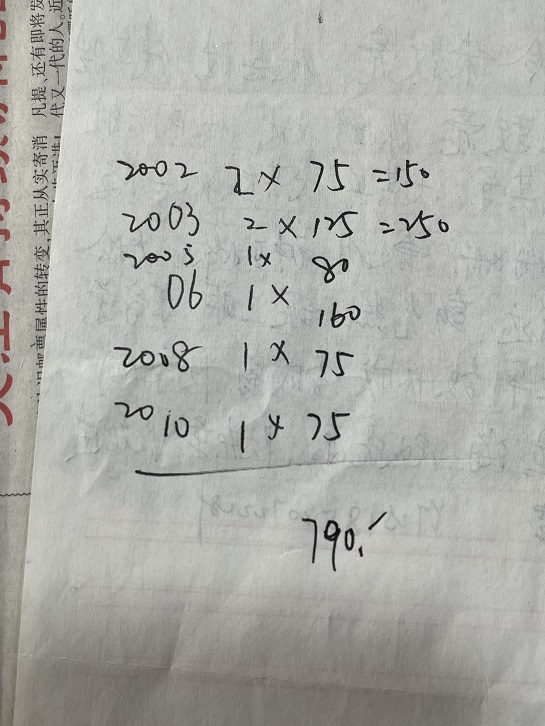 凡提、还有即将发
代又一代的人。近
其正从实寄消
属性的转变,
2002 2 × 75 =150
2003 2 × 125 =250
2005 1× 80
06 1 × 160
2008 1 × 75
2010 1 × 75
790.